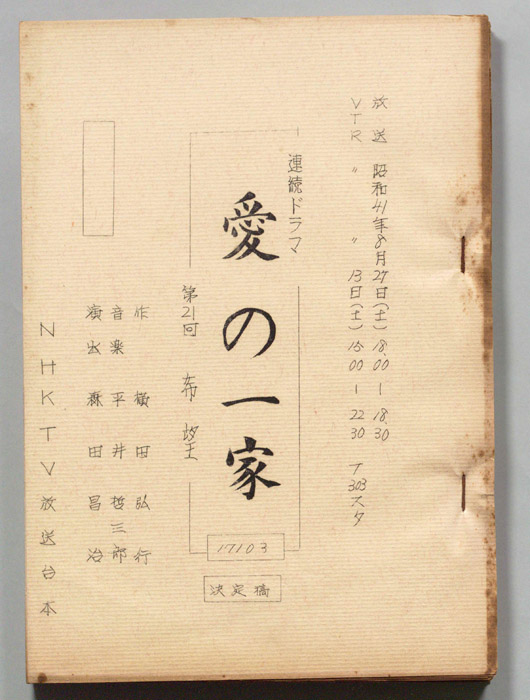 放送 昭和41年8月27日(土)18.00ー18.30
VTR 〃 〃 13日(土)15.00ー22.30 T303スタ
連続ドラマ
愛の一家
第21回 希望
17103
決定稿
作 横田弘行
音楽 平井哲三郎
演出 森田昌治
NHKTV放送台本